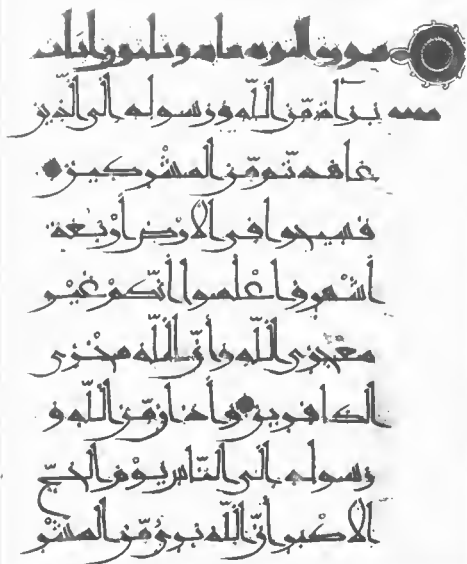 سورة التوبه مايه وثلثون
بَرَآءَة مِّنَ اللَّه وَرَسوله الى الَّذين
عاهدتُّم مِّنَ المشْركين
فسيحوا في الارْض أَرْبَعَة
أَشْهر واعْلموا أَنَّكمْ غَيْر
معْجزي اللَّه وأَنَّ اللَّه مخْزي
الكافرين وأَذان مِّنَ اللَّه و
رَسوله الى النَّاس يوْمَ الحجّ
الاكْبر أَنَّ اللَّه برئ مِّنَ المشْر